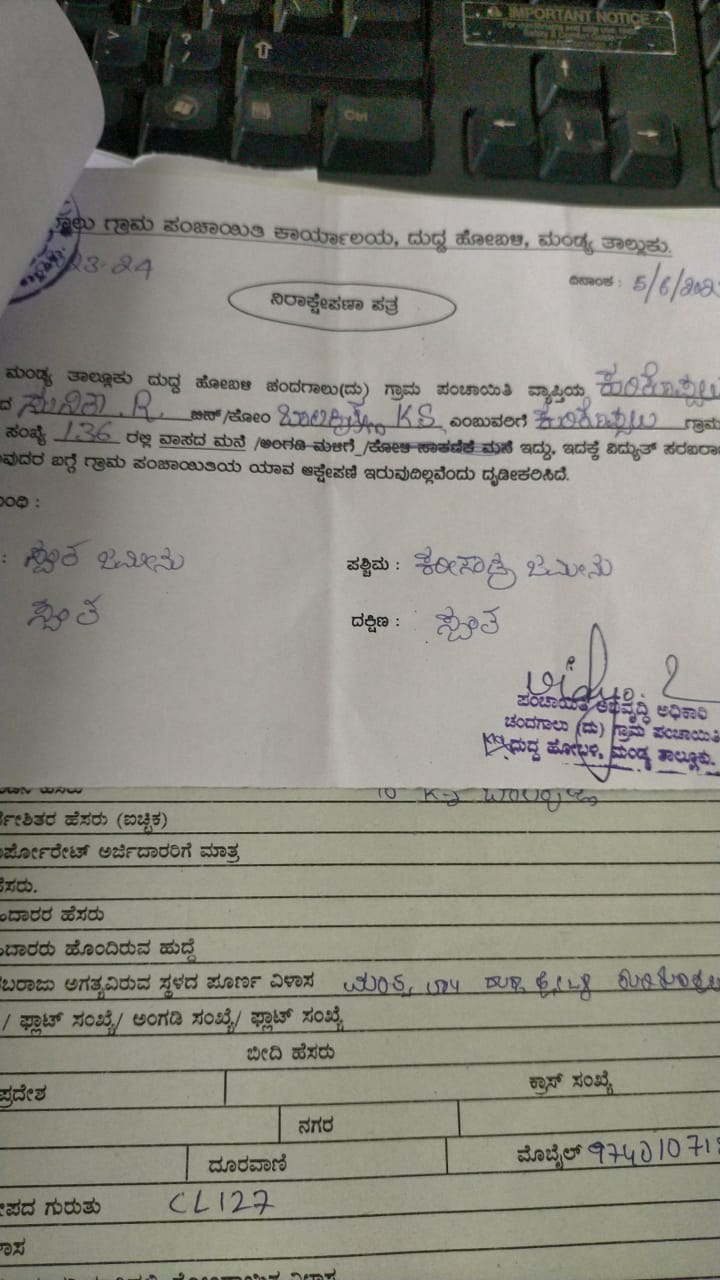 IMPORTANT NOTICE
Ctrl
ಗ್ರಾಮ ಪಂಚಾಯಿತಿ ಕಾರ್ಯಾಲಯ, ದುದ್ದ ಹೋಬಳಿ, ಮಂಡ್ಯ ತಾಲ್ಲುಕು.
23-24
ದಿನಾಂಕ : 5/6/202
ನಿರಾಕ್ಷೇಪಣಾ ಪತ್ರ
ಮಂಡ್ಯ ತಾಲ್ಲೂಕು ದುದ್ದ ಹೋಬಳಿ ಚಂದಗಾಲು(ದು) ಗ್ರಾಮ ಪಂಚಾಯಿತಿ ವ್ಯಾಪ್ತಿಯ
ದ ಸುನಿತಾ .R. ಬಿನ್/ಕೋಂ ಬಾಲಕೃಷ್ಣ K.S ಎಂಬುವರಿಗೆ ಗ್ರಾಮ
ಸಂಖ್ಯೆ 136 ರಲ್ಲಿ ವಾಸದ ಮನೆ /ಅಂಗಡಿ ಮಳಿಗೆ /ಕೋಳಿ ಸಾಕಣಿಕೆ ಮನೆ ಇದ್ದು, ಇದಕ್ಕೆ ವಿದ್ಯುತ್ ಸರಬರಾ
ವುದರ ಬಗ್ಗೆ ಗ್ರಾಮ ಪಂಚಾಯಿತಿಯ ಯಾವ ಆಕ್ಷೇಪಣೆ ಇರುವುದಿಲ್ಲವೆಂದು ದೃಡೀಕರಿಸಿದೆ.
ಬಂಧಿ :
: ಸ್ವಂತ ಜಮೀನು ಪಶ್ಚಿಮ : ಜಮೀನು
ಸ್ವಂತ ದಕ್ಷಿಣ : ಸ್ವಂತ
ಪಂಚಾಯಿತಿ ಅಭಿವೃದ್ಧಿ ಅಧಿಕಾರಿ
ಚಂದಗಾಲು (ದು) ಗ್ರಾಮ ಪಂಚಾಯಿತಿ
ದುದ್ದ ಹೋಬಳಿ, ಮಂಡ್ಯ ತಾಲ್ಲೂಕು.
ರ್ದೇಶಿತರ ಹೆಸರು (ಐಚ್ಛಿಕ)
ರ್ಪೋರೇಟ್ ಅರ್ಜಿದಾರರಿಗೆ ಮಾತ್ರ
ಹೆಸರು.
ದಾರರ ಹೆಸರು
ದಾರರು ಹೊಂದಿರುವ ಹುದ್ದೆ
ಬರಾಜು ಅಗತ್ಯವಿರುವ ಸ್ಥಳದ ಪೂರ್ಣ ವಿಳಾಸ
/ ಫ್ಲಾಟ್ ಸಂಖ್ಯೆ/ ಅಂಗಡಿ ಸಂಖ್ಯೆ/ ಫ್ಲಾಟ್ ಸಂಖ್ಯೆ
ಬೀದಿ ಹೆಸರು
ಪ್ರದೇಶ ಕ್ರಾಸ್ ಸಂಖ್ಯೆ
ನಗರ
ದೂರವಾಣಿ ಮೊಬೈಲ್ 974010718
ೀಪದ ಗುರುತು CL127
ಳಾಸ